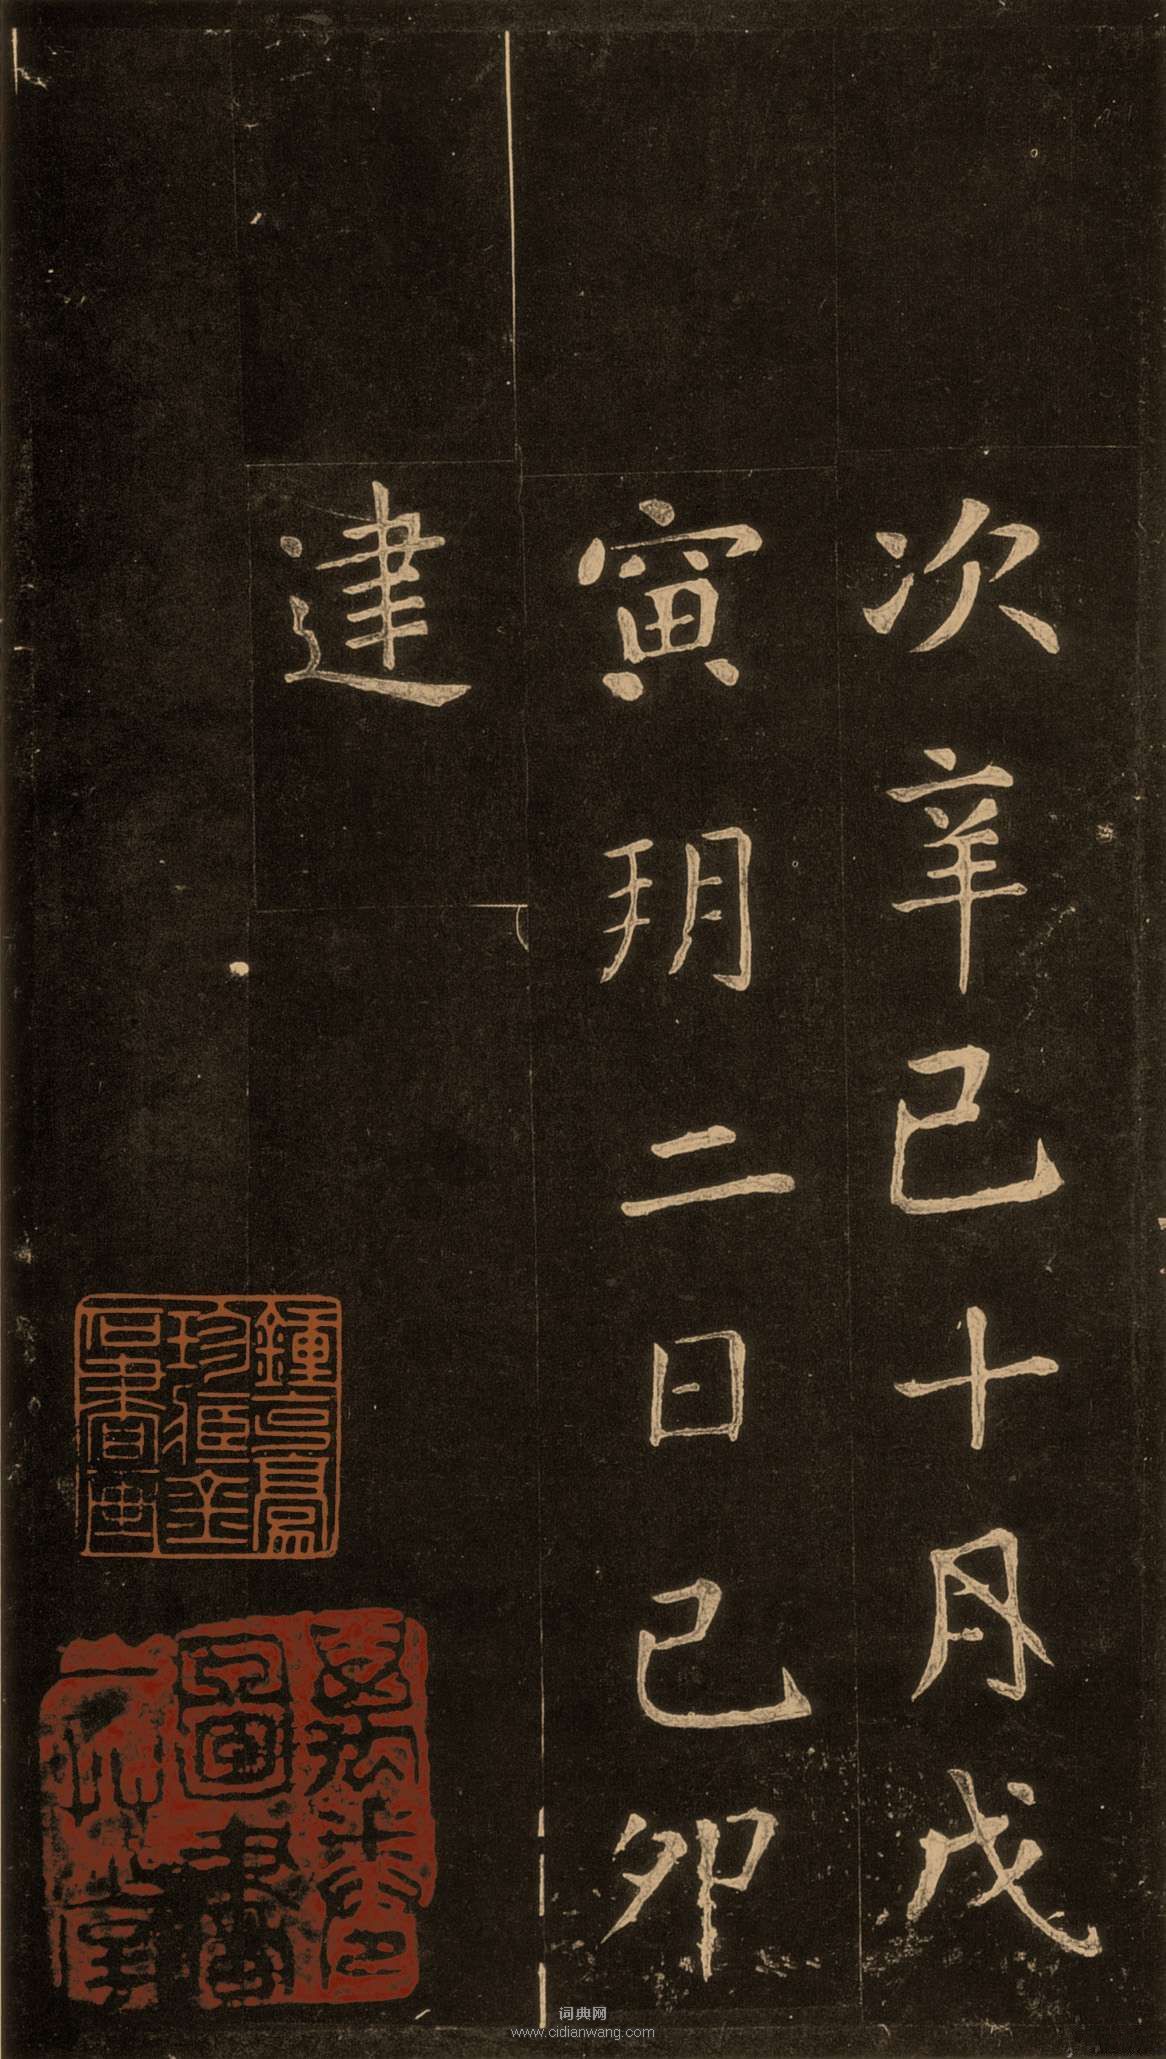 次辛巳十月戊
寅朔二日己卯
建
珍藏金
石書畫
词典网
www.cidianwang.com